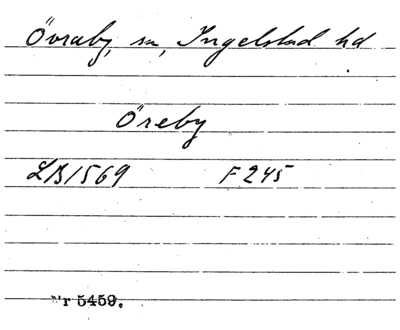 Övraby, sn, Ingelstad hd
Öreby
LB1569 F245
Nr 5459.